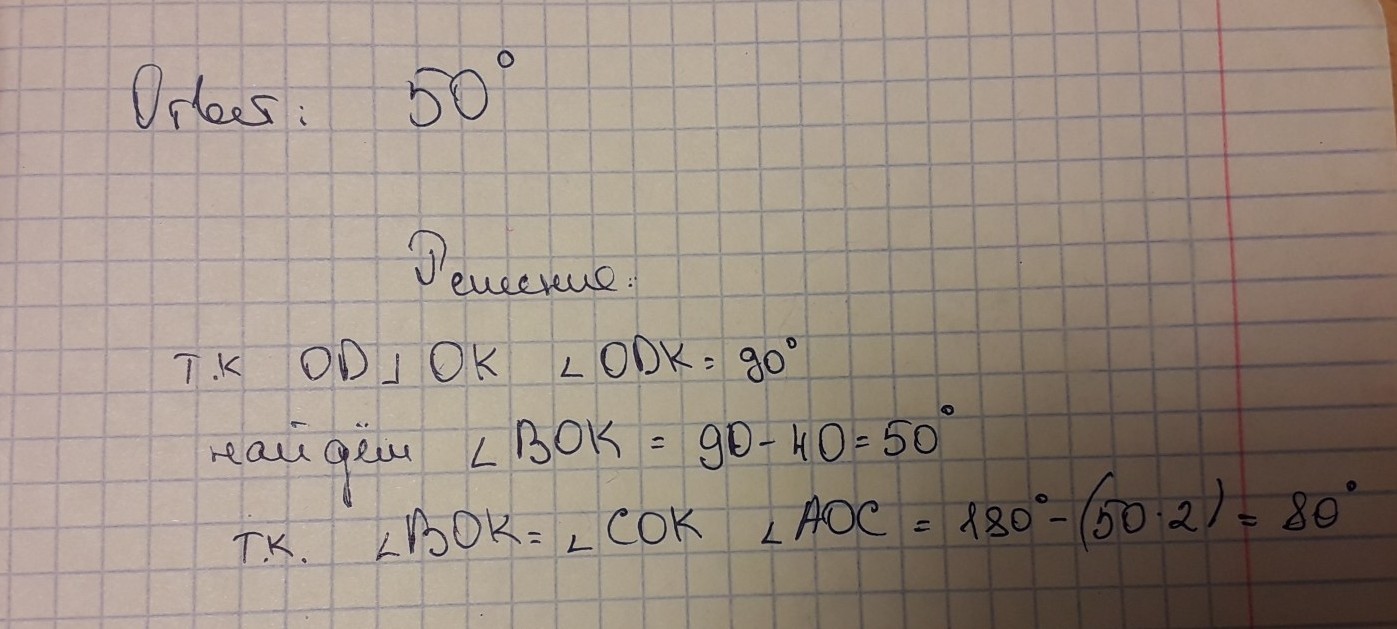 Ответ: 50°
Решение:
т.к OD⊥OK ∠ODK = 90°
найдём ∠BOK = 90-40=50°
т.к. ∠BOK= ∠COK ∠AOC = 180°-(50·2) = 80°